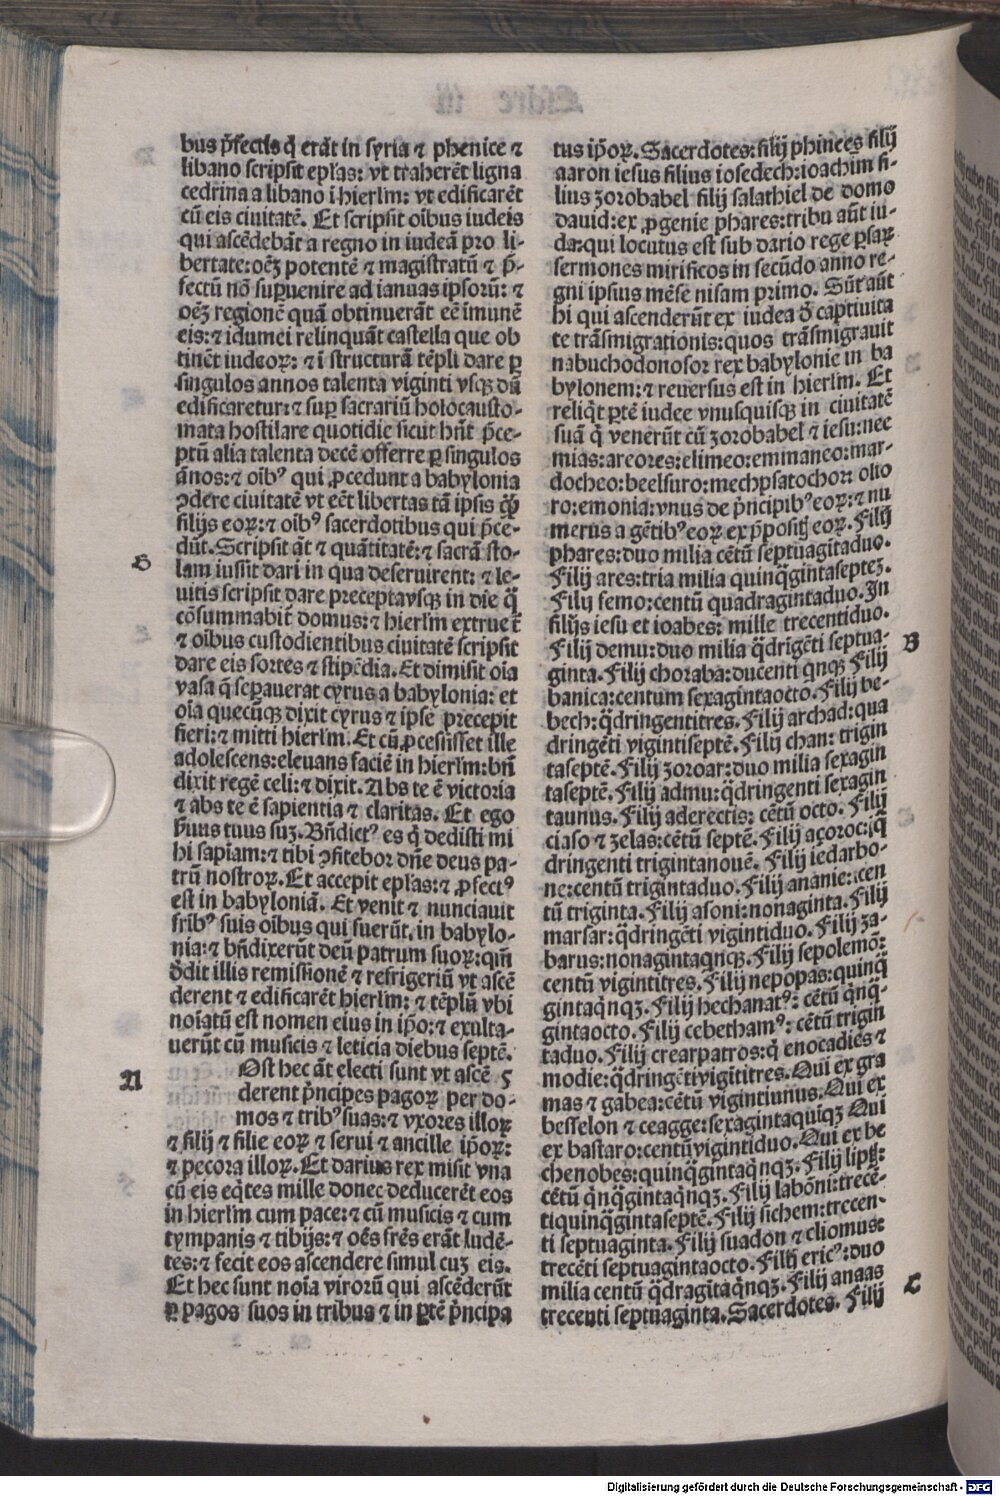 bus p̄fectis q̄ erāt in syria ⁊ phenice ⁊
libano scripsit ep̄las: vt traherēt ligna
cedrina a libano ī hierl̄m: vt edificarēt
cū eis ciuitatē. Et scripsit oībus iudeis
qui ascēdebāt a regno in iudeā pro li-
bertate: oēꝫ potentē ⁊ magistratū ⁊ p̄-
fectū nō suꝑuenire ad ianuas ipsorū: ⁊
oēꝫ regionē quā obtinuerāt eē īmunē
eis: ⁊ idumei relinquāt castella que ob
tinēt iudeoꝝ: ⁊ ī structurā tēpli dare ꝑ
singulos annos talenta viginti vsqꝫ dū
edificaretur: ⁊ suꝑ sacrariū holocausto-
mata hostilare quotidie sicut hn̄t p̄ce-
ptū alia talenta decē offerre ꝑ singulos
ānos: ⁊ oībꝰ qui ꝓcedunt a babylonia
ꝯdere ciuitatē vt eēt libertas tā ipsis qꝫ̄
filijs eoꝝ: ⁊ oībꝰ sacerdotibus qui p̄ce-
dūt. Scripsit āt ⁊ quātitatē: ⁊ sacrā sto-
lam iussit dari in qua deseruirent: ⁊ le-
uitis scripsit dare precepta vsqꝫ in die q̄
cōsummabit̄ domus: ⁊ hierl̄m extruet̄
⁊ oībus custodientibus ciuitatē scripsit
dare eis sortes ⁊ stipēdia. Et dimisit oīa
vasa q̄ seꝑauerat cyrus a babylonia: et
oīa quecūqꝫ dixit cyrus ⁊ ipse precepit
fieri: ⁊ mitti hierl̄m. Et cū ꝓcessisset ille
adolescens: eleuans faciē in hierl̄m: bn̄
dixit regē celi: ⁊ dixit. Abs te ē victoria
⁊ abs te ē sapientia ⁊ claritas. Et ego
ẜuus tuus suꝫ. Bn̄dictꝰ es q̄ dedisti mi
hi sapīam: ⁊ tibi ꝯfitebor dn̄e deus pa-
trū nostroꝝ. Et accepit ep̄las: ⁊ ꝓfectꝰ
est in babyloniā. Et venit ⁊ nunciauit
fribꝰ suis oībus qui fuerūt in babylo-
nia: ⁊ bn̄dixerūt deū patrum suoꝝ: qm̄
dedit illis remissionē ⁊ refrigeriū vt ascē
derent ⁊ edificarēt hierl̄m: ⁊ tēplū vbi
noīatū est nomen eius in ip̄o: ⁊ exulta-
uerūt cū musicis ⁊ leticia diebus septē.
Ost hec āt electi sunt vt ascē 5
derent p̄ncipes pagoꝝ per do-
mos ⁊ tribꝰ suas: ⁊ vxores illoꝝ
⁊ filij ⁊ filie eoꝝ ⁊ serui ⁊ ancille ip̄oꝝ:
⁊ pecora illoꝝ. Et darius rex misit vna
cū eis eq̄tes mille donec deducerēt eos
in hierl̄m cum pace: ⁊ cū musicis ⁊ cum
tympanis ⁊ tibijs: ⁊ oēs frēs erāt ludē-
tes: ⁊ fecit eos ascendere simul cuꝫ eis.
Et hec sunt noīa virorū qui ascēderūt
ꝑ pagos suos in tribus ⁊ in ꝑtē p̄ncipa
G
A
tus ip̄oꝝ. Sacerdotes: filij phinees filij
aaron iesus filius iosedech: ioachim fi-
lius zorobabel filij salathiel de domo
dauid: ex ꝓgenie phares: tribu aūt iu-
da: qui locutus est sub dario rege ꝑsaꝝ
sermones mirificos in secūdo anno re-
gni ipsius mēse nisam primo. Sūt aūt
hi qui ascenderūt ex iudea d̄ captiuita
te trāsmigrationis: quos trāsmigrauit
nabuchodonosor rex babylonie in ba
bylonem: ⁊ reuersus est in hierl̄m. Et
reliq̄t ꝑtē iudee vnusquisqꝫ in ciuitatē
suā q̄ venerūt cū zorobabel ⁊ iesu: nee
mias: areores: elimeo: emmaneo: mar-
docheo: beelsuro: mechpsatochor: olio
ro: emonia: vnus de p̄ncipibꝰ eoꝝ: ⁊ nu
merus a gētibꝰ eoꝝ ex p̄positꝭ eoꝝ. Filij
phares: duo milia cētū septuagītaduo.
Filij ares: tria milia quinq̄gintasepteꝫ.
Filij femo: centū quadragintaduo. In
filijs iesu et ioabes: mille trecentiduo.
Filij demu: duo milia q̄drīgēti septua-
ginta. Filij choraba: ducenti qnqꝫ Filij
banica: centum sexagintaocto. Filij be-
bech: q̄dringentitres. Filij archad: qua
dringēti vigintiseptē. Filij chan: trigin
taseptē. Filij zoroar: duo milia sexagin
taseptē. Filij admu: q̄dringenti sexagin
taunus. Filij aderectis: cētū octo. Filij
ciaso ⁊ zelas: cētū septē. Filij açoroc: q̄
dringenti trigintanouē. Filij iedarbo-
ne: centū trigintaduo. Filij ananie: cen
tū triginta. Filij asoni: nonaginta. Filij
marsar: q̄dringēti vigintiduo. Filij za-
barus: nonagintaqnqꝫ. Filij sepolemō:
centū vigintitres. Filij nepopas: quinq̄
gintaqnqꝫ. Filij hechanatꝰ: cētū qnq̄-
gintaocto. Filij cebethamꝰ: cētū trigin
taduo. Filij crearpatros: q̄ enocadies ⁊
modie: q̄dringētivigītitres. Qui ex gra
mas ⁊ gabea: cētū vigintiunus. Qui ex
besselon ⁊ ceagge: sexagintaquīqꝫ Qui
ex bastaro: centū vigintiduo. Qui ex be
chenobes: quinq̄gintaqnqꝫ. Filij liptꝭ:
cētū qnq̄gintaqnqꝫ. Filij labōni: trecē-
tiquinq̄gintaseptē. Filij sichem: trecen-
ti septuaginta. Filij suadon ⁊ cliomus:
trecēti septuagintaocto. Filij ericꝰ: duo
milia centū q̄dragītaqnqꝫ. Filij anaas
trecenti septuaginta. Sacerdotes. Filij
B
C
Digitalisierung gefördert durch die Deutsche Forschungsgemeinschaft - DFG